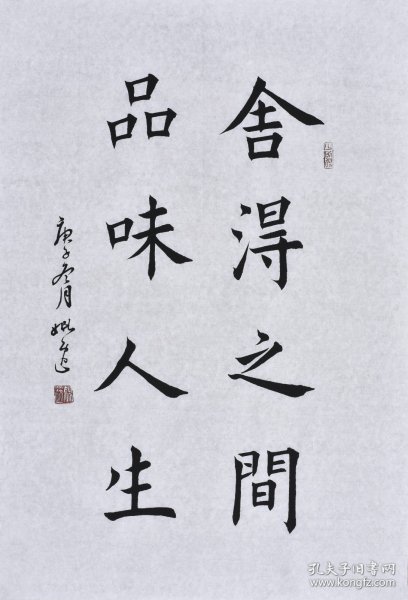 舍淂之間
品味人生
庚子冬月
孔夫子旧书网